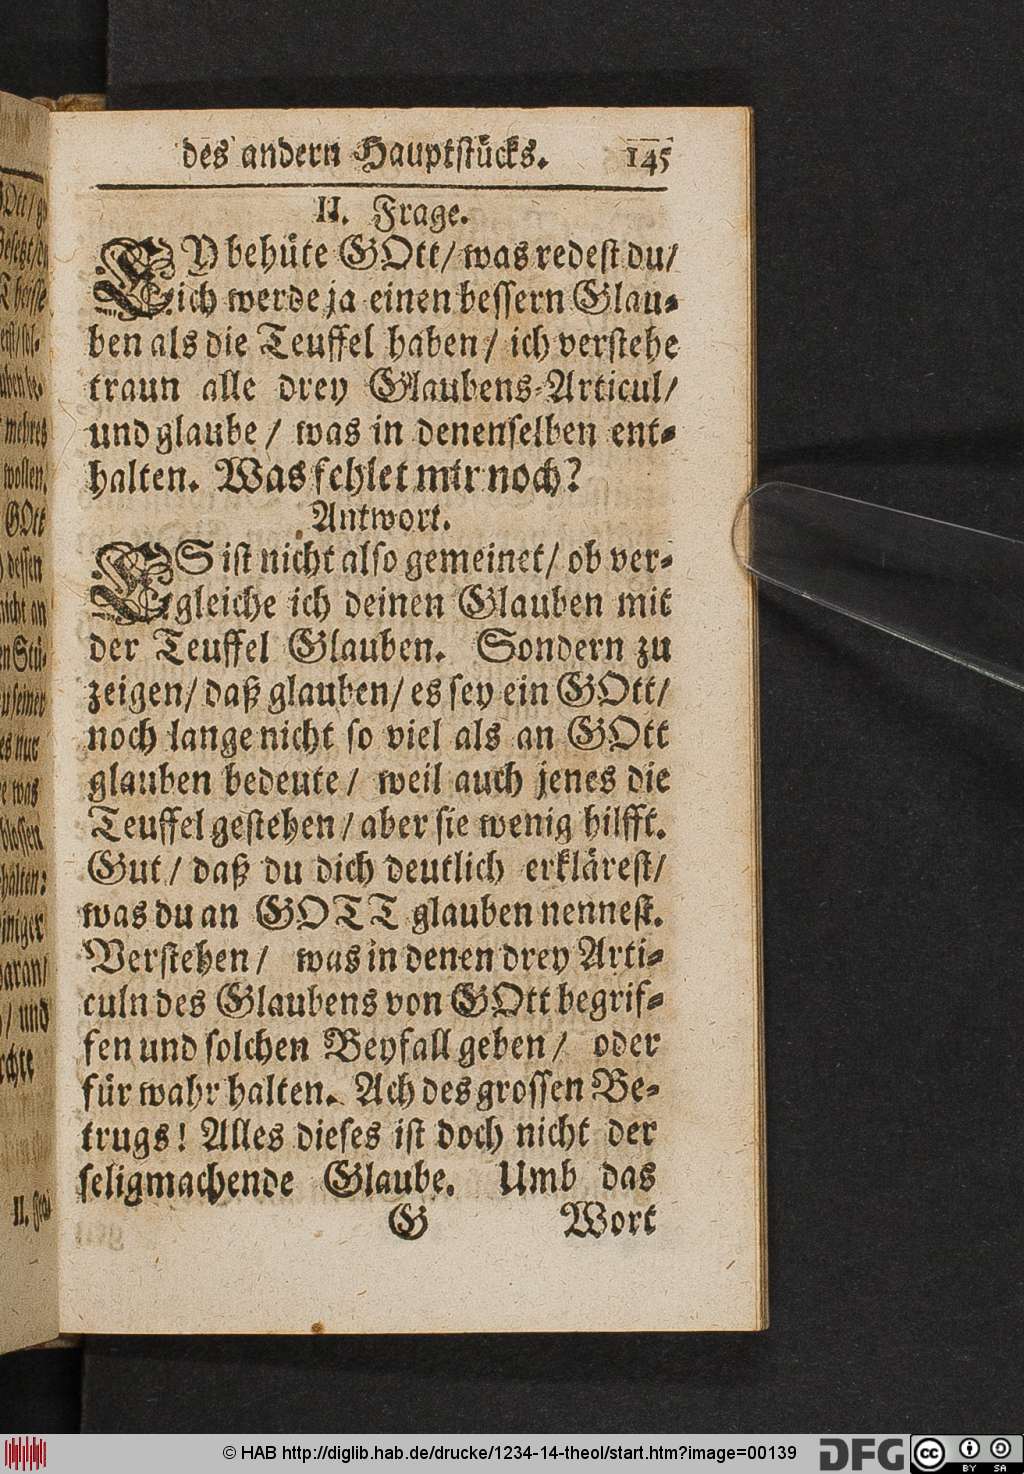 des andern Hauptstücks. 145
II. Frage.
EY behüte GOtt/ was redest du/
ich werde ja einen bessern Glau-
ben als die Teuffel haben/ ich verstehe
traun alle drey Glaubens-Articul/
und glaube/ was in denenselben ent-
halten. Was fehlet mir noch?
Antwort.
ES ist nicht also gemeinet/ ob ver-
gleiche ich deinen Glauben mit
der Teuffel Glauben. Sondern zu
zeigen/ daß glauben/ es sey ein GOtt/
noch lange nicht so viel als an GOtt
glauben bedeute/ weil auch jenes die
Teuffel gestehen/ aber sie wenig hilfft.
Gut/ daß du dich deutlich erklärest/
was du an GOTT glauben nennest.
Verstehen/ was in denen drey Arti-
culn des Glaubens von GOtt begrif-
fen und solchen Beyfall geben/ oder
für wahr halten. Ach des grossen Be-
trugs! Alles dieses ist doch nicht der
seligmachende Glaube. Umb das
G Wort
© HAB http://diglib.hab.de/drucke/1234-14-theol/start.htm?image=00139
DFG
cc BY SA